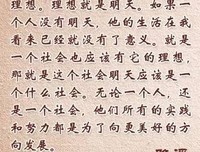 理想。理想就是明天。如果一
个人没有明天,他的生活在我
看来已经就没有了意义。就是
一个社会也应该有它的理想,
那就是这个社会明天应该是一
个什么。无论一个人,还
是一个社会,他们所有的实践
和努力都是为了向更美好的方
向发展。